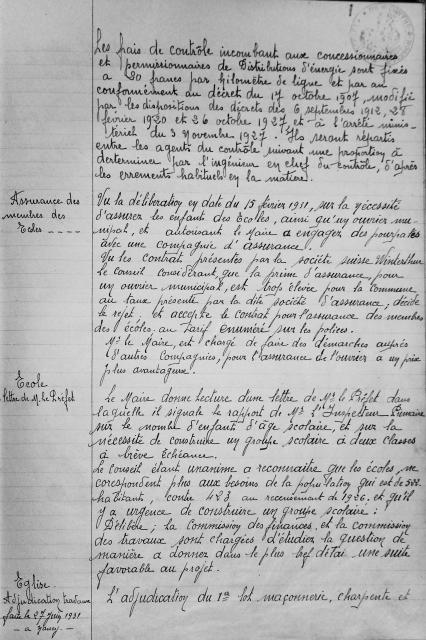 1
Les frais de contrôle incombant aux concessionnaires
et permissionnaires de Distributions d'énergie sont fixés
à 20 francs par kilomètre de ligne et par an
conformément au décret du 17 octobre 1907, modifié
par les dispositions des décrets des 6 septembre 1912, 28
février 1920 et 26 octobre 1927 et à l'arrêté minis-
tériel du 3 novembre 1927. Ils seront répartis
entre les agents du contrôle suivant une proportion à
determiner par l'ingénieur en chef du contrôle, d'après
les errements habituels en la matière.
Assurance des
membres des
Ecoles ----
Vu la délibération en date du 15 février 1931, sur la nécessité
d'assurer les enfants des Ecoles, ainsi qu'un ouvrier mu-
nipal, et autorisant le Maire a engagez des pourpales
avec une compagnie d'assurance.
Vu les contrat présentés par la société suisse Winterthur
Le Conseil considérant que la prime d'assurance, pour
un ouvrier municipal, est trop élevée pour la commune
au taux présenté par la dite société d'assurance, décide
le rejet, et accepte le contrat pour l'assurance des membres
des écoles, au Tarif enuméré sur les polices.
Mr le Maire, est chargé de faire des démarches auprès
d'autres Compagnies, pour l'assurance de l'ouvrier à un prix
plus avantageux.
Ecole
lettre de M. le Préfet
Le Maire donne lecture d'une lettre de Mr le Préfet dans
laquelle il signale le rapport de Mr l'Inspecteur Primaire
sur le nombre d'enfants d'âge scolaire, et sur la
nécessité de construire un groupe scolaire à deux classes
à brève échéance.
Le Conseil étant unanime a reconnaitre que les écoles, ne
correspondent plus aux besoins de la population qui est de 502
habitants, contre 423 au recensement de 1926. et qu'il
y a urgence de construire un groupe scolaire :
Délibère ; la commission des finances, et la commission
des travaux sont chargées d'étudiez la question de
manière a donnez dans le plus bref délai une suite
favorable au projet.
Eglise.
Adjudication travaux
faite le 27 Juin 1931
- a Nancy -
L'adjudication du 1er lot maçonnerie, charpente et